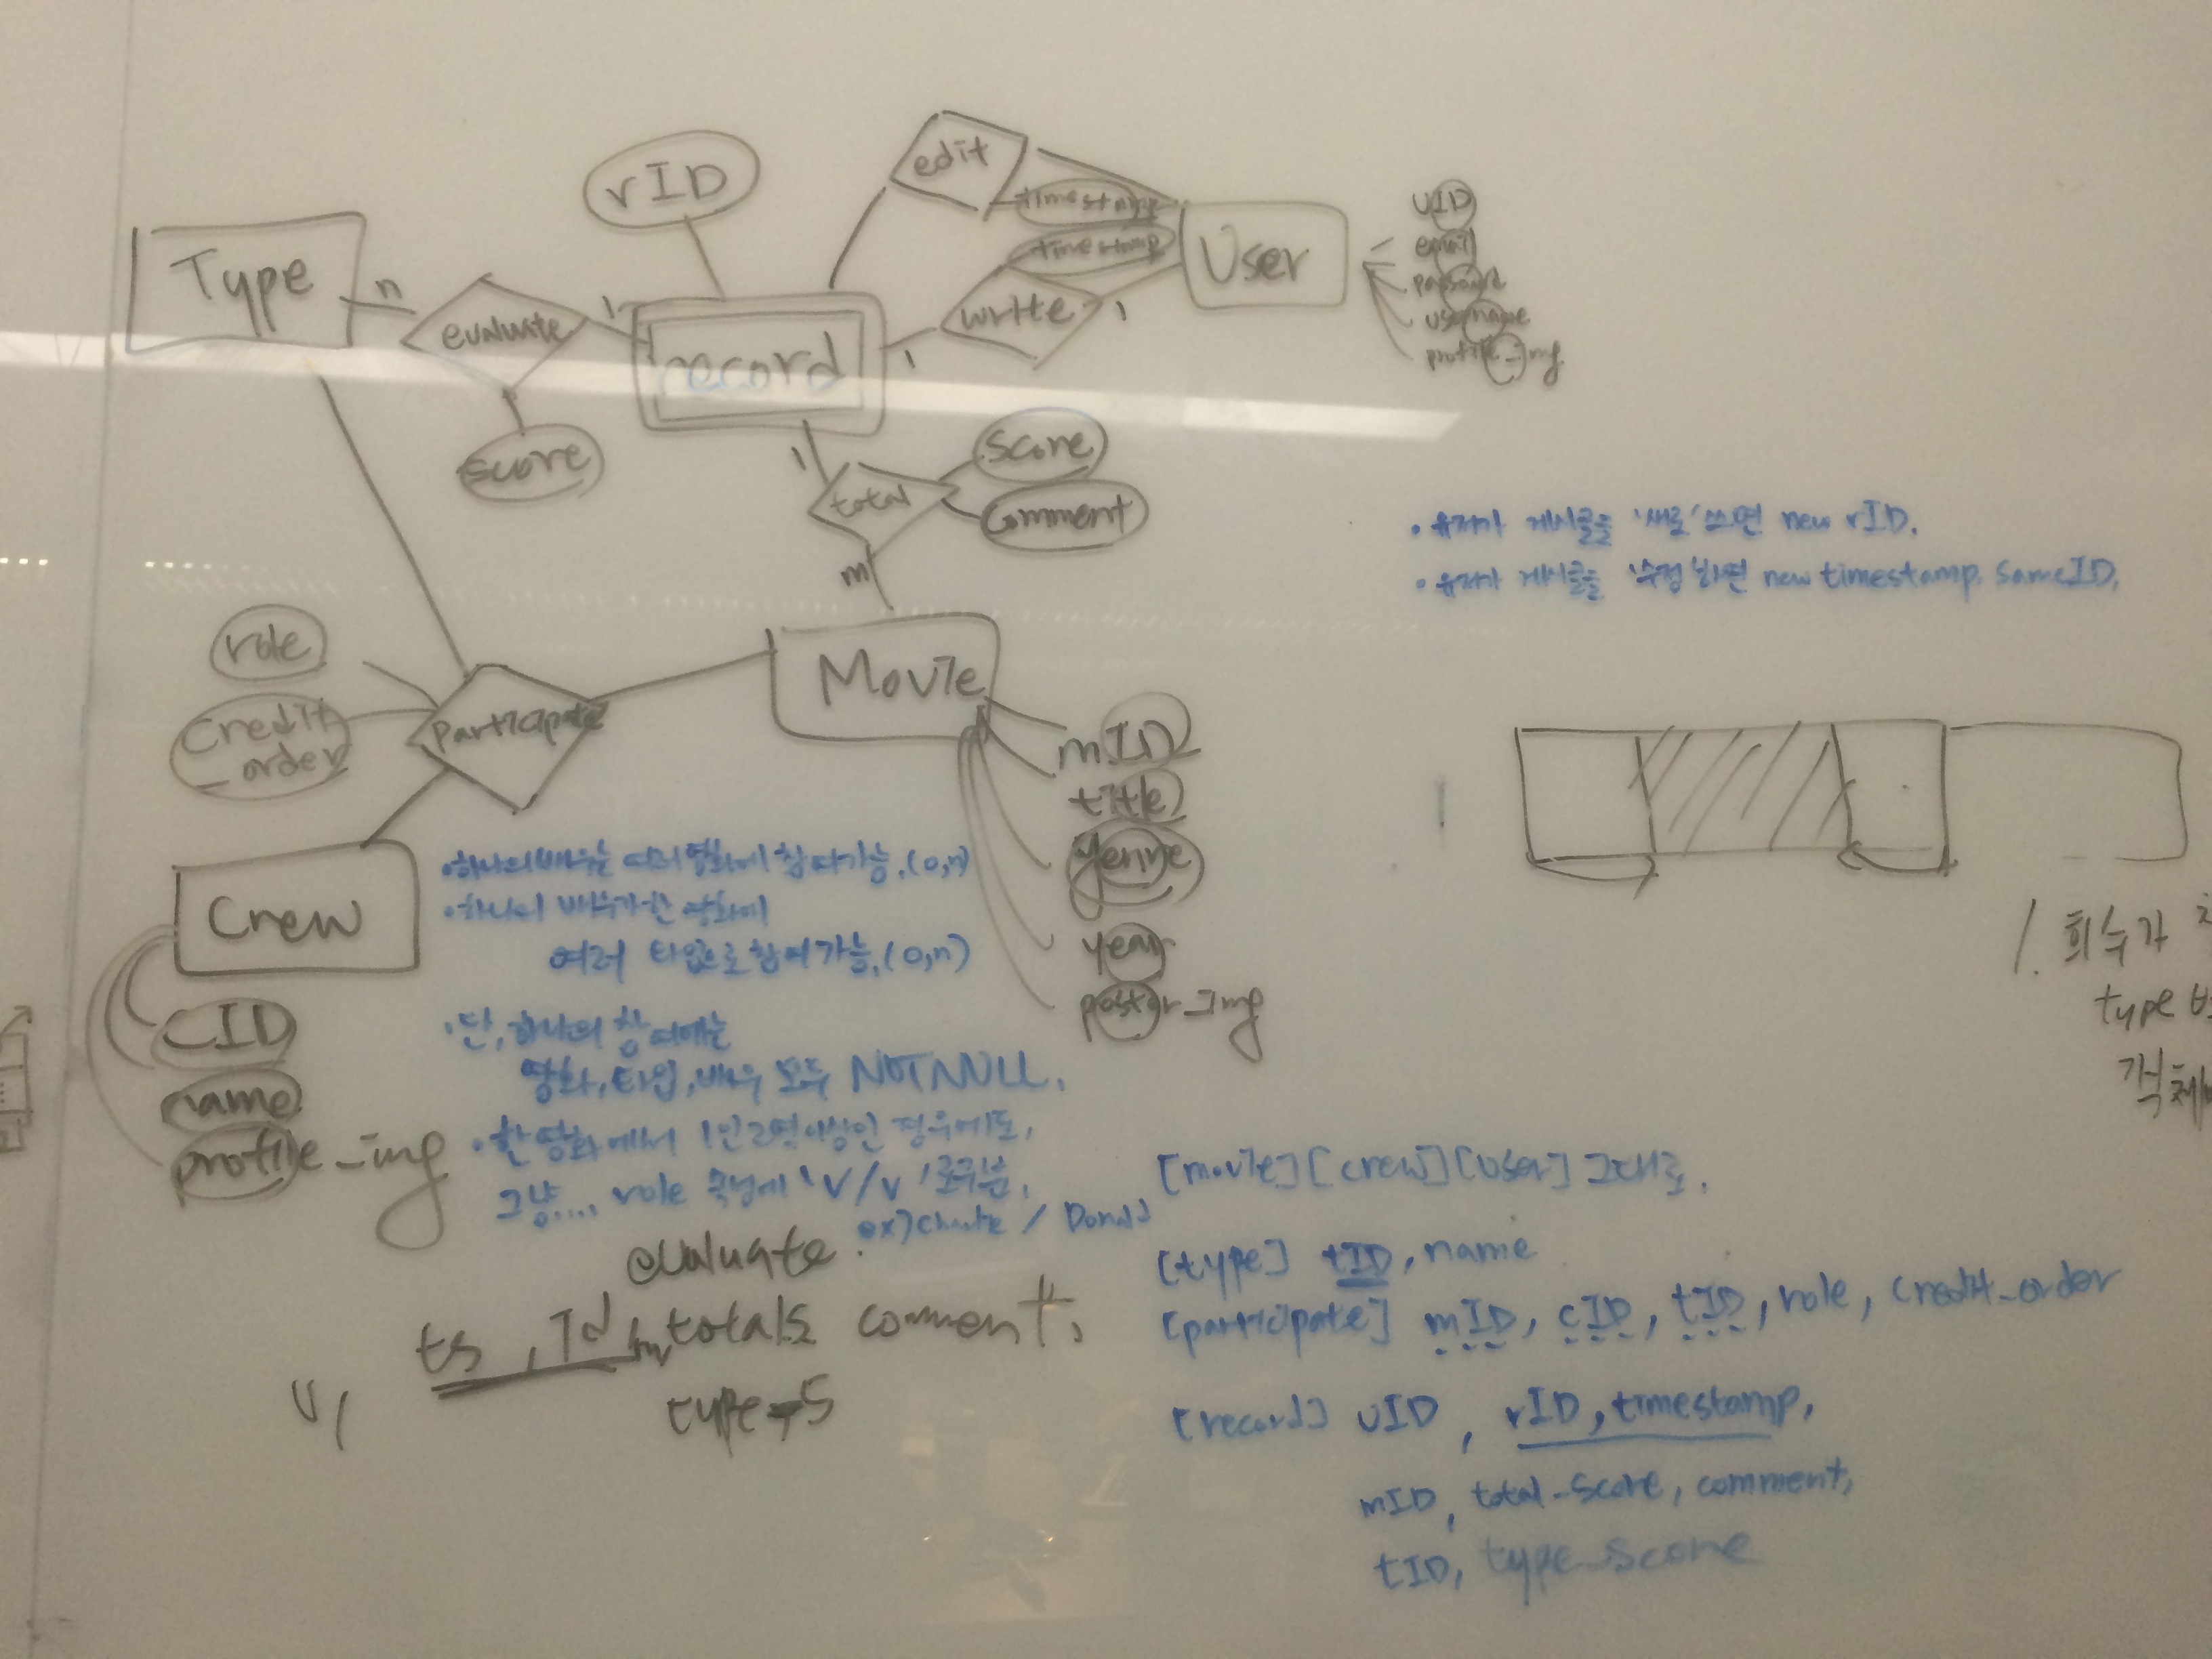 edit
rID
timestamp
timestamp
Type
n
evaluate
1
record
1
write
1
User
uID
email
password
username
profile_img
score
1
total
score
comment
m
• 유저가 게시글을 '새로' 쓰면 new rID.
• 유저가 게시글을 '수정'하면 new timestamp. same ID.
role
credit
_order
participate
Movie
mID
title
genre
year
poster_img
Crew
CID
name
profile_img
• 하나의 배우는 여러 영화에 참여가능. (0,n)
• 하나의 배우가 한 영화에
여러 타입으로 참여가능. (0,n)
• 단, 하나의 참여에는
영화, 타입, 배우 모두 NOT NULL.
• 한 영화에서 1인 2역 이상인 경우에도,
그냥.... role 속성에 'v/v'로 구분.
ex)
/ Donald
1. 회수가
type
객체
[movie] [crew] [user] 그대로.
[type] tID, name
[participate] mID, cID, tID, role, credit_order
[record] uID, rID, timestamp,
mID, total_score, comment,
tID, type_score
evaluate
ts, Id, totals comment,
type-s